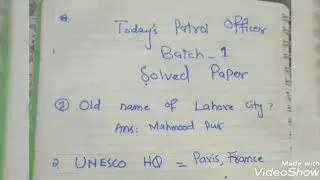 Today's Patrol Officer
Batch-1
Solved Paper
② Old name of Lahore city?
Ans: Mahmood Pur
UNESCO HQ = Paris, France
Made with
VideoShow